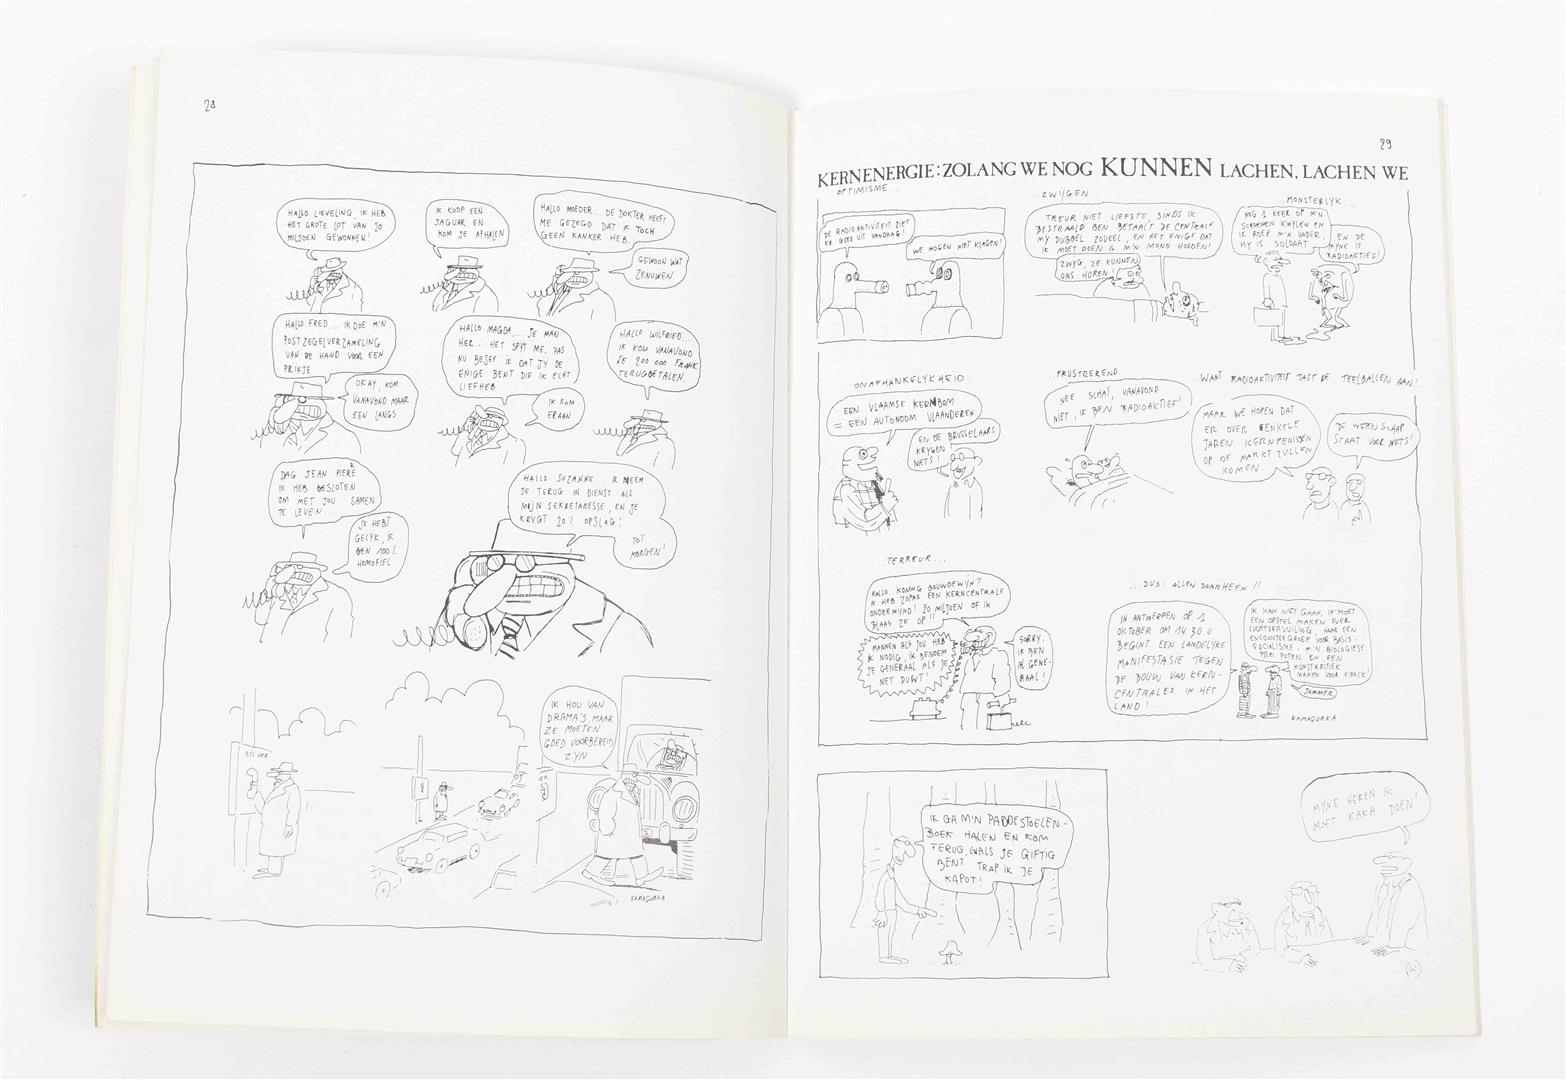 28
HALLO LIEVELING, IK HEB
HET GROTE LOT VAN 20
MILJOEN GEWONNEN!
IK KOOP EEN
JAGUAR EN
KOM JE AFHALEN
HALLO MOEDER... DE DOKTER HEEFT
ME GEZEGD DAT IK TOCH
GEEN KANKER HEB.
GEWOON WAT
ZENUWEN.
HALLO FRED.... IK DOE M'N
POSTZEGELVERZAMELING
VAN DE HAND VOOR EEN
PRIKJE
OKAY, KOM
VANAVOND MAAR
EEN LANGS
HALLO MAGDA.... JE MAN
HIER... HET SPYT ME, PAS
NU BESEF IK DAT JY DE
ENIGE BENT DIE IK ECHT
LIEFHEB
IK KOM
ERAAN
HALLO WILFRIED...
IK KOM VANAVOND
JE 200 000 FRANK
TERUGBETALEN
DAG JEAN PIERE
IK HEB BESLOTEN
OM MET JOU SAMEN
TE LEVEN...
JE HEBT
GELYK, IK
BEN 100%
HOMOFIEL
HALLO SUZANNE... IK NEEM
JE TERUG IN DIENST ALS
MIJN SEKRETARESSE, EN JE
KRYGT 20% OPSLAG!
TOT
MORGEN!
IK HOU VAN
DRAMA'S, MAAR
ZE MOETEN
GOED VOORBEREID
ZYN
KAMAGURKA
29
KERNENERGIE: ZOLANG WE NOG KUNNEN LACHEN, LACHEN WE
OPTIMISME...
DE RADIOAKTIVITEIT ZIET
ER GOED UIT VANDAAG!
WE MOGEN NIET KLAGEN!
...ZWYGEN...
TREUR NIET LIEFSTE, SINDS IK
BESTRAALD BEN BETAALT DE CENTRALE
MY DUBBEL ZOVEEL, EN HET ENIGE DAT
IK MOET DOEN IS M'N MOND HOUDEN!
ZWYG, ZE KUNNEN
ONS HOREN!
...MONSTERLYK...
NOG 1 KEER OP M'N
SCHOENEN KWYLEN EN
IK ROEP M'N VADER,
HY IS SOLDAAT
EN DE
MYNE IS
RADIOAKTIEF!
ONAFHANKELYKHEID...
EEN VLAAMSE KERNBOM
= EEN AUTONOOM VLAANDEREN
EN DE BRUSSELAARS
KRYGEN
NIETS!
...FRUSTREREND...
NEE SCHAT, VANAVOND
NIET, IK BEN RADIOAKTIEF!
...WANT RADIOAKTIVITEIT TAST DE TEELBALLEN AAN!
MAAR WE HOPEN DAT
ER OVER ENKELE
JAREN KERNPENISSEN
OP DE MARKT ZULLEN
KOMEN
DE WETENSCHAP
STAAT VOOR NIETS!
...TERREUR...
HALLO.. KONING BOUDEWYN?
IK HEB ZOPAS EEN KERNCENTRALE
ONDERMYND! 20 MILJOEN OF IK
BLAAS ZE OP!!
MANNEN ALS JOU HEB
IK NODIG, IK BENOEM
JE GENERAAL ALS JE
NIET DUWT!
SORRY.
IK BEN
AL GENE-
RAAL!
...DUS: ALLEN DAARHEEN!!
IN ANTWERPEN OP 1
OKTOBER OM 14.30 U
BEGINT EEN LANDELYKE
MANIFESTASIE TEGEN
DE BOUW VAN KERN-
CENTRALES IN HET
LAND!
IK KAN NIET GAAN, IK MOET
EEN OPSTEL MAKEN OVER
LUCHTVERVUILING, NAAR EEN
ENCOUNTERGROEP VOOR BASIS-
SOCIALISME, M'N BIOLOGIESE
PREI POTEN EN EEN
KUNSTKRITIEK
MAKEN VOOR KNACK!
JAMMER
KAMAGURKA.
IK GA M'N PADDESTOELEN-
BOEK HALEN EN KOM
TERUG, EN ALS JE GIFTIG
BENT TRAP IK JE
KAPOT!
MYNE HEREN IK
MOET KAKA DOEN!
K